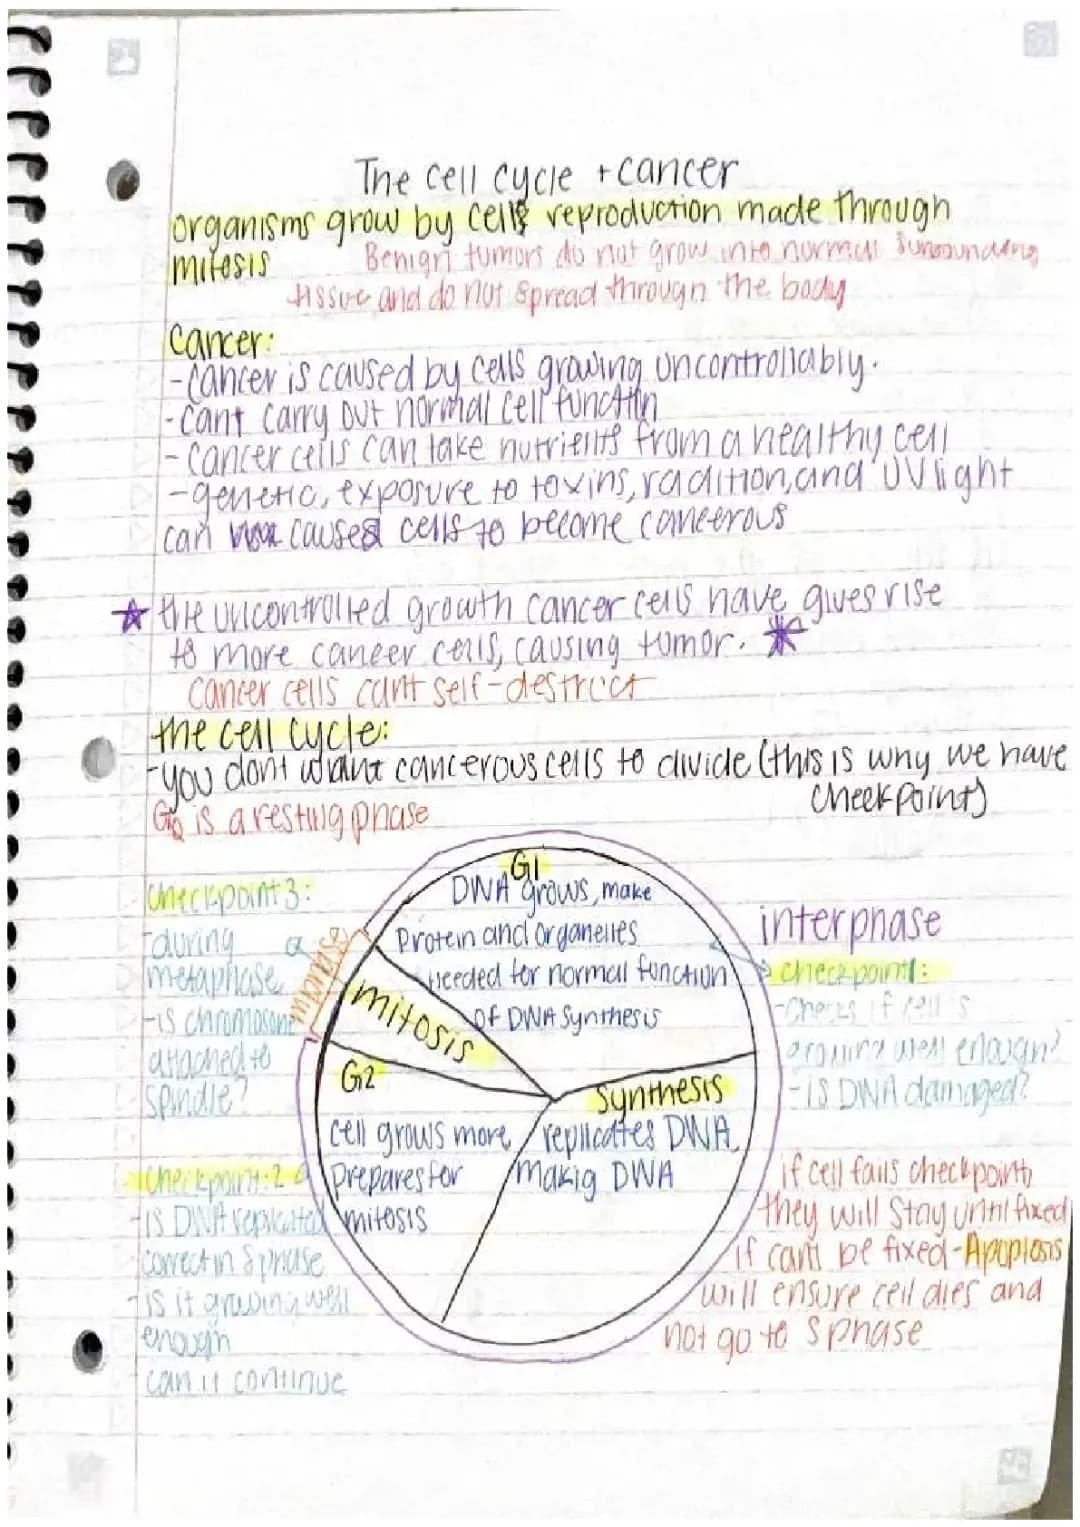 The cell cycle + cancer
organisms grow by cells reproduction made through
mitosis
Benign tumors do not grow into normal surrounding
tissue and do not spread through the body
Cancer:
-Cancer is caused by cells growing uncontrollably.
-cant carry out normal cell functin
-Cancer cells can take nutrients from a healthy cell
-genetic, exposure to toxins, radition, and UV light
can caused cells to become cancerous
☆ the uncontrolled growth cancer cells have gives rise
to more cancer cells, causing tumor. ☆
cancer cells cant self-destrcct
the cell cycle:
-you dont want cancerous cells to divide (this is why we have
checkpoint)
G0 is a resting phase
G1
DNA grows, make
Protein and organelles
needed for normal function
of DNA synthesis
interphase
checkpoint1:
-checks if cell's
growing well enough?
-is DNA damaged?
checkpoint 3:
-during
metaphase
-is chromosome
attached to
spindle?
mitosis
G2
cell grows more
prepares for
mitosis
synthesis
replicates DNA,
makig DNA
checkpoint:2
-is DNA replicated
correct in S phase
-is it growing well
enough
can it continue
if cell fails checkpoint,
they will stay until fixed
if cant be fixed-Apoptosis
will ensure cell dies and
not go to S phase